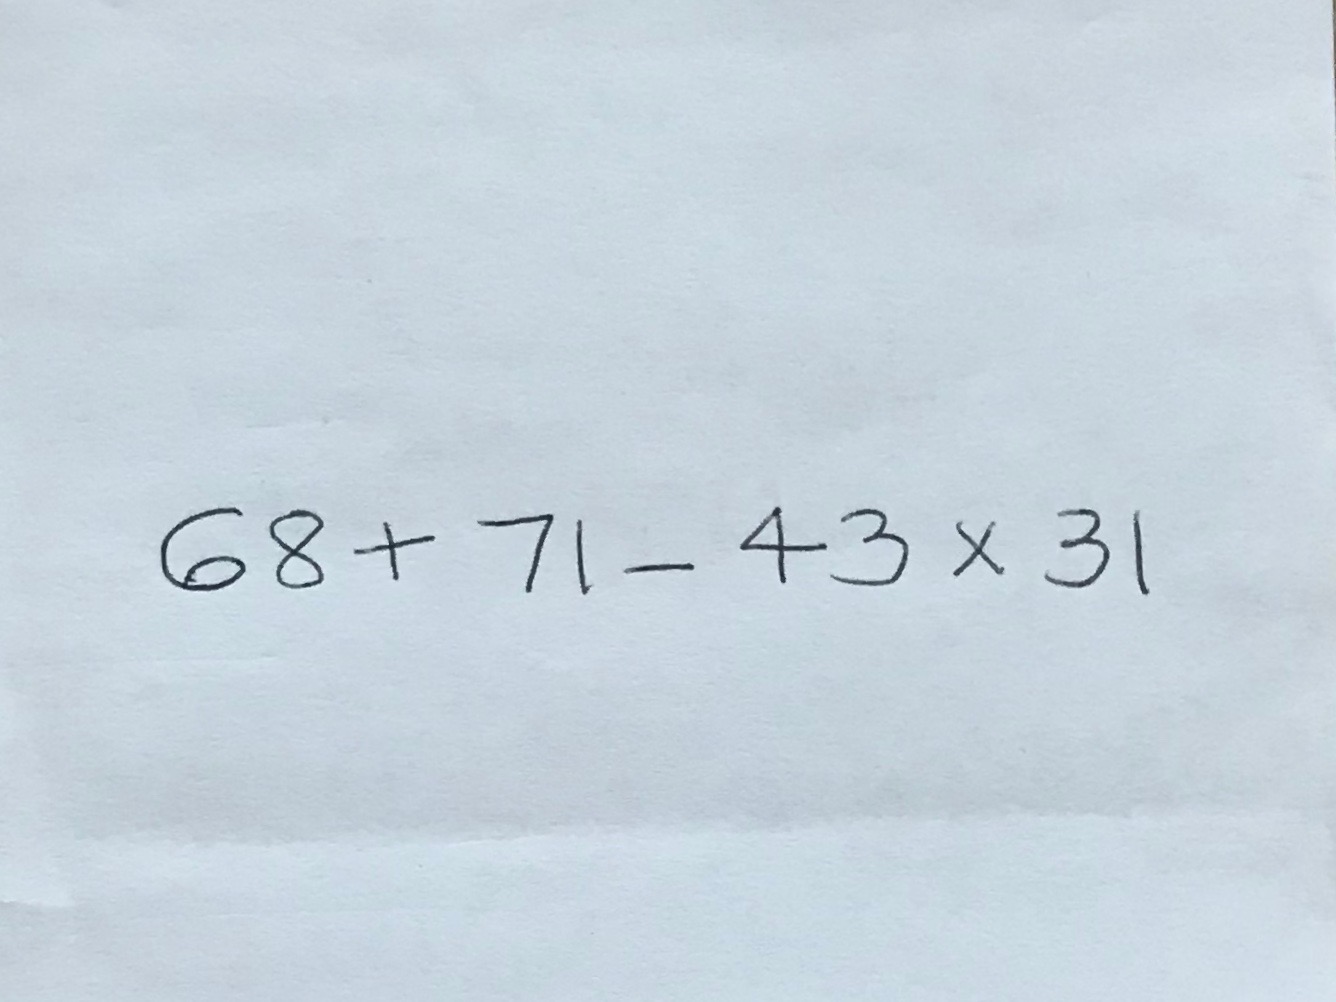 68 + 71 - 43 × 31